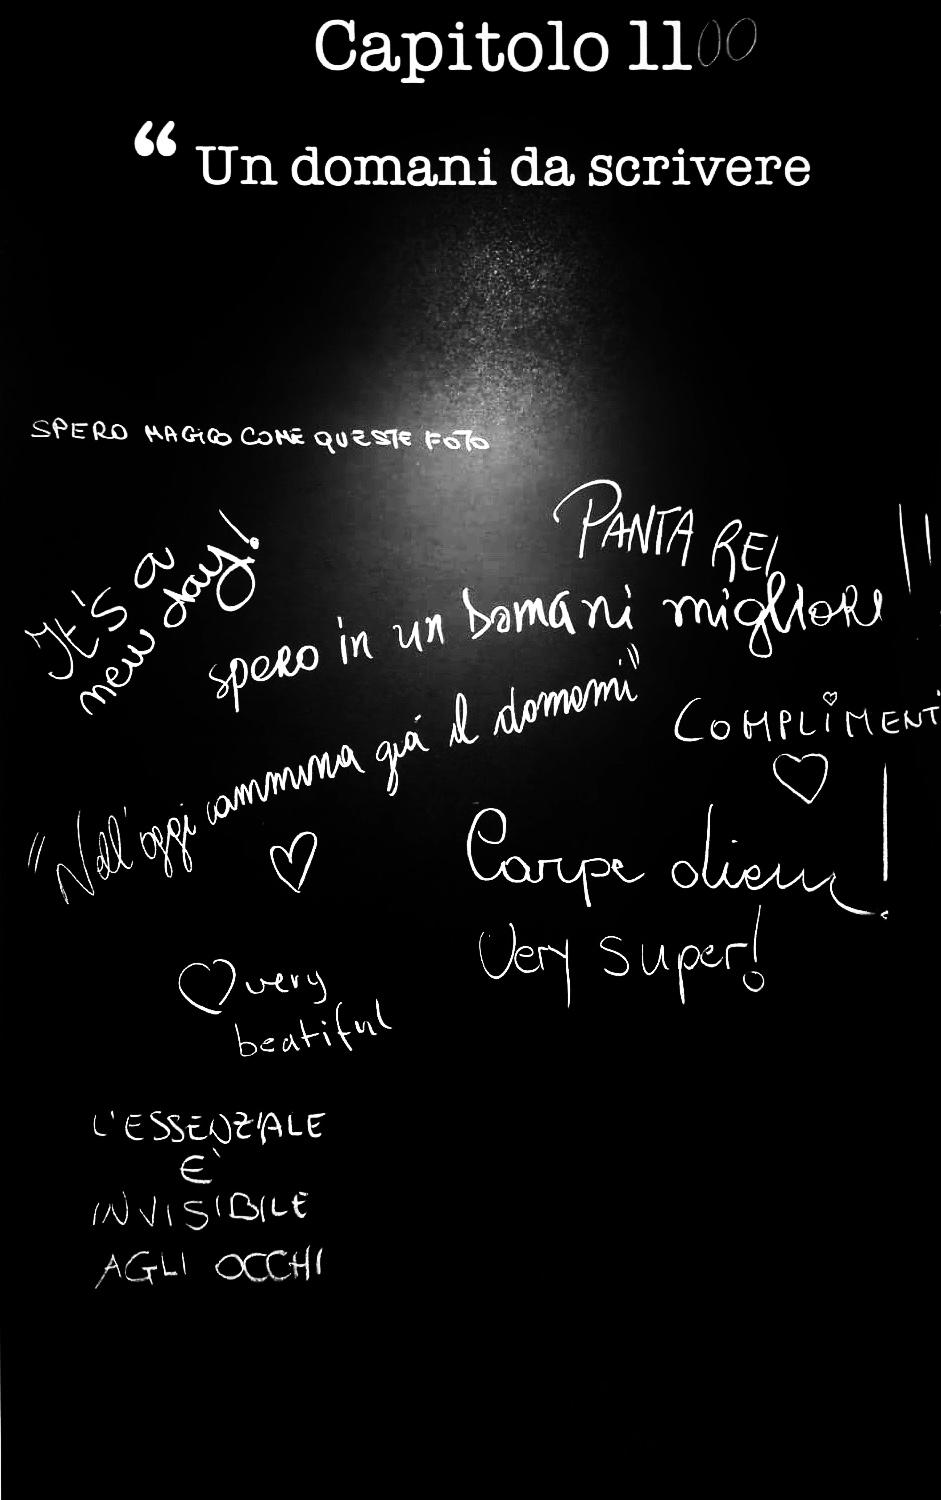 Capitolo 1100
“ Un domani da scrivere
SPERO MAGICO COME QUESTE FOTO
It's a
new day!
PANTA REI
spero in un Domani migliore !!
"Nell'oggi cammina già il domani"
COMPLIMENTI
Carpe diem!
Very super!
very
beatiful
L'ESSENZIALE
E'
INVISIBILE
AGLI OCCHI